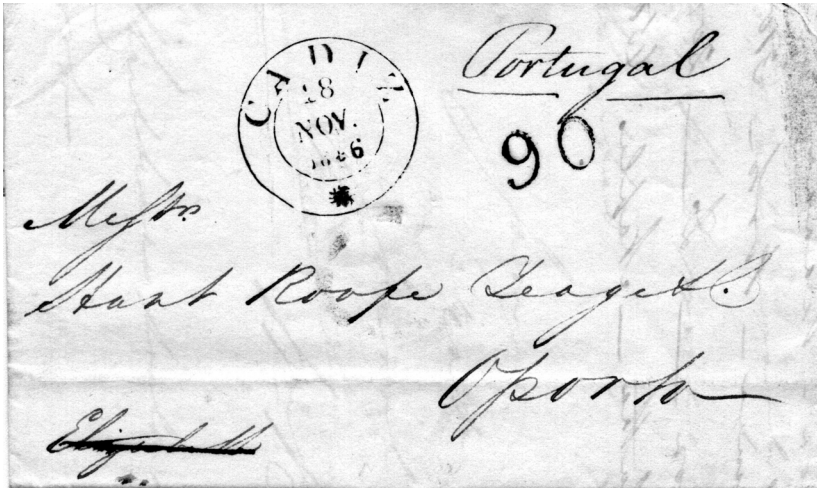 CADIZ
18
NOV.
1846
Portugal
90
Messrs.
Hunt Roope Teage & Co.
Oporto
Elizabeth